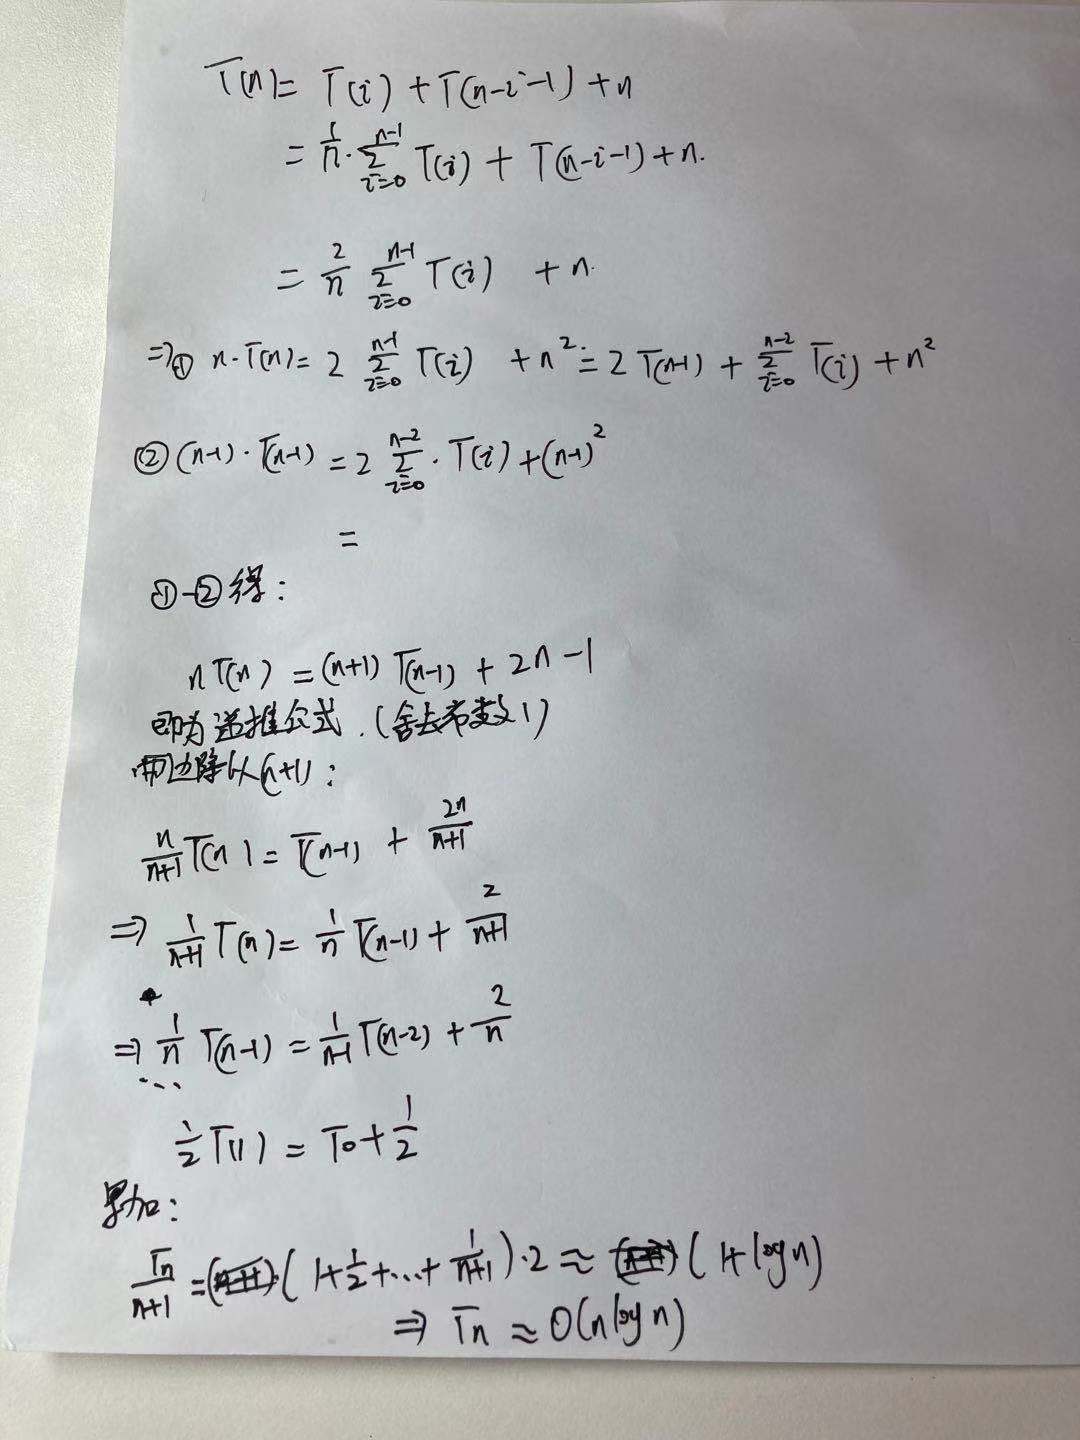 T(n) = T(i) + T(n-i-1) + n
= 1/n · ∑_{i=0}^{n-1} T(i) + T(n-i-1) + n.
= 2/n ∑_{i=0}^{n-1} T(i) + n.
⇒① n·T(n) = 2 ∑_{i=0}^{n-1} T(i) + n² = 2 T(n-1) + ∑_{i=0}^{n-2} T(i) + n²
② (n-1)·T(n-1) = 2 ∑_{i=0}^{n-2} · T(i) + (n-1)²
=
①-②得:
nT(n) = (n+1) T(n-1) + 2n - 1
即为递推公式.(舍去常数1)
两边除以(n+1):
n/(n+1) T(n) = T(n-1) + 2n/(n+1)
⇒ 1/(n+1) T(n) = 1/n T(n-1) + 2/(n+1)
⇒ 1/n T(n-1) = 1/(n-1) T(n-2) + 2/n
...
1/2 T(1) = T0 + 1/2
累加:
Tn/(n+1) = (1+1/2+...+1/(n+1))·2 ≈ (1+logn)
⇒ Tn ≈ O(nlogn)